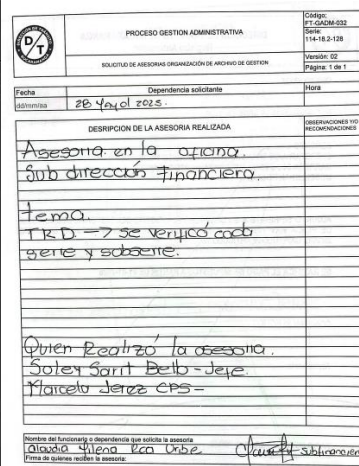 D/T
PROCESO GESTION ADMINISTRATIVA
SOLICITUD DE ASESORIAS ORGANIZACIÓN DE ARCHIVO DE GESTION
Código:
FT-GADM-032
Serie:
114-18.2-128
Versión: 02
Página: 1 de 1
Fecha
Dependencia solicitante
Hora
dd/mm/aa
28 Mayo/ 2025.
DESRIPCION DE LA ASESORIA REALIZADA
OBSERVACIONES Y/O RECOMENDACIONES
Asesoria en la oficina.
Sub dirección Financiera.
tema.
TRD -> se verificó cada
serie y subserie.
Quien Realizó la asesoria.
Suley Sarit Bello - Jefe.
Marcela Jerez CPS -
Nombre del funcionario o dependencia que solicita la asesoria
claudia Milena Roa Uribe
Subfinanciera
Firma de quienes reciben la asesoria: